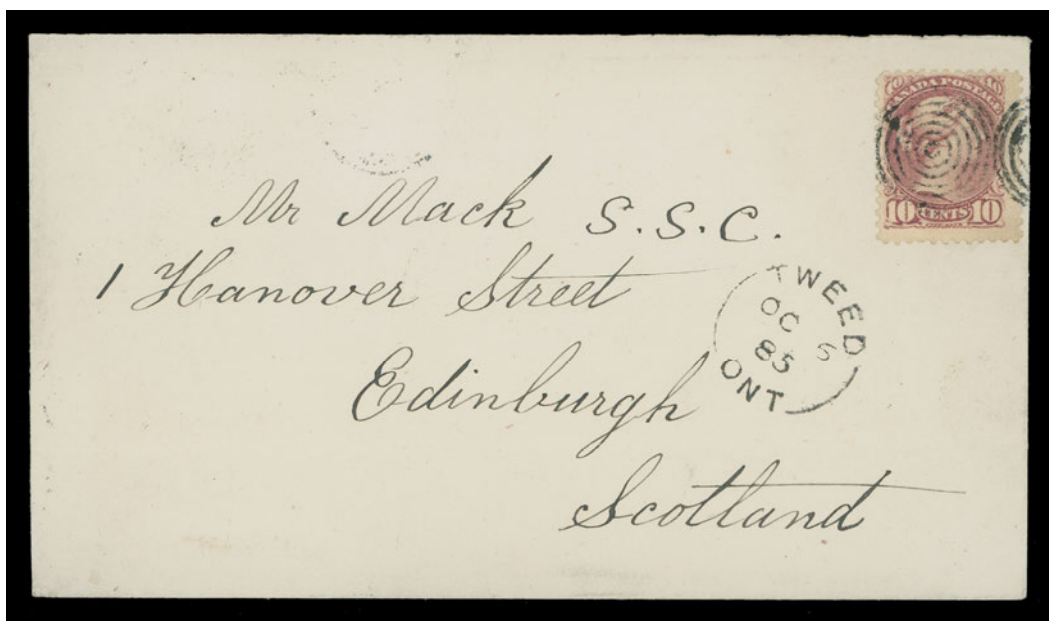 CANADA POSTAGE
10 CENTS 10
Mr Mack S.S.C.
1 Hanover Street
TWEED
OC 6
85
ONT
Edinburgh
Scotland